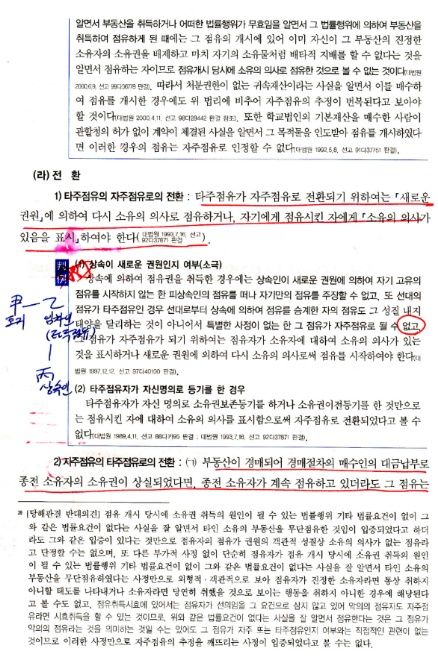 알면서 부동산을 취득하거나 어떠한 법률행위가 무효임을 알면서 그 법률행위에 의하여 부동산을
취득하여 점유하게 된 때에는 그 점유의 개시에 있어 이미 자신이 그 부동산의 진정한
소유자의 소유권을 배제하고 마치 자기의 소유물처럼 배타적 지배를 할 수 없다는 것을
알면서 점유하는 자이므로 점유개시 당시에 소유의 의사로 점유한 것으로 볼 수 없는 것이다(대법원
2000.6.9. 선고 99다36778 판결). 따라서 처분권이 없는 귀속재산이라는 사실을 알면서 이를 매수하
여 점유를 개시한 경우에도 위 법리에 비추어 자주점유의 추정이 번복된다고 보아야
할 것이다(대법원 2000.4.11. 선고 98다28442 판결 참조). 또한 학교법인의 기본재산을 매수한 사람이
관할청의 허가 없이 계약이 체결된 사실을 알면서 그 목적물을 인도받아 점유를 개시하였다
면 이러한 경우의 점유는 자주점유로 인정할 수 없다(대법원 1992.5.8. 선고 91다37751 판결).
(라) 전 환
1) 타주점유의 자주점유로의 전환 : 타주점유가 자주점유로 전환되기 위하여는 「새로운
권원」에 의하여 다시 소유의 의사로 점유하거나, 자기에게 점유시킨 자에게 「소유의 의사가
있음을 표시」하여야 한다(대법원 1993.7.16. 선고 92다37871 판결).
판례
(1) 상속이 새로운 권원인지 여부(소극)
상속에 의하여 점유권을 취득한 경우에는 상속인이 새로운 권원에 의하여 자기 고유의
점유를 시작하지 않는 한 피상속인의 점유를 떠나 자기만의 점유를 주장할 수 없고, 또 선대의
점유가 타주점유인 경우 선대로부터 상속에 의하여 점유를 승계한 자의 점유도 그 성질 내지
태양을 달리하는 것이 아니어서 특별한 사정이 없는 한 그 점유가 자주점유로 될 수 없고,
그 점유가 자주점유가 되기 위하여는 점유자가 소유자에 대하여 소유의 의사가 있는
것을 표시하거나 새로운 권원에 의하여 다시 소유의 의사로써 점유를 시작하여야 한다(대법
원 1997.12.12. 선고 97다40100 판결).
甲 ― 乙
丙
상속인
(2) 타주점유자가 자신명의로 등기를 한 경우
타주점유자가 자신 명의로 소유권보존등기를 하거나 소유권이전등기를 한 것만으로
는 점유시킨 자에 대하여 소유의 의사를 표시함으로써 자주점유로 전환되었다고 볼 수
없다(대법원 1989.4.11. 선고 88다카95 판결 ; 대법원 1993.7.16. 선고 92다37871 판결).
2) 자주점유의 타주점유로의 전환 : (ㄱ) 부동산이 경매되어 경매절차의 매수인의 대금납부로
종전 소유자의 소유권이 상실되었다면, 종전 소유자가 계속 점유하고 있더라도 그 점유는
[당해판결 반대의견] 점유 개시 당시에 소유권 취득의 원인이 될 수 있는 법률행위 기타 법률요건이 없이 그
와 같은 법률요건이 없다는 사실을 잘 알면서 타인 소유의 부동산을 무단점유한 것임이 입증되었다고 하더
라도 그와 같은 입증이 있다는 것만으로 점유자의 점유가 권원의 객관적 성질상 소유의 의사가 없는 점유라
고 단정할 수는 없으며, 또 다른 부가적 사정 없이 단순히 점유자가 점유 개시 당시에 소유권 취득의 원인
이 될 수 있는 법률행위 기타 법률요건이 없이 그와 같은 법률요건이 없다는 사실을 잘 알면서 타인 소유의
부동산을 무단점유하였다는 사정만으로 외형적·객관적으로 보아 점유자가 진정한 소유자라면 통상 취하지
아니할 태도를 나타내거나 소유자라면 당연히 취했을 것으로 보이는 행동을 취하지 아니한 경우에 해당된다
고 볼 수도 없고, 점유취득시효에 있어서는 점유자가 선의임을 그 요건으로 삼지 않고 있어 악의의 점유자도 자주점
유라면 시효취득을 할 수 있는 것이므로, 위와 같은 법률요건이 없다는 사실을 잘 알면서 점유한다는 것은 그 점유가
악의의 점유라는 것을 의미하는 것일 수는 있어도 그 점유가 자주 또는 타주점유인지 여부와는 직접적인 관련이 없는
것이므로 이러한 사정만으로 자주점유의 추정을 깨뜨리는 사정이 입증되었다고 볼 수는 없다.